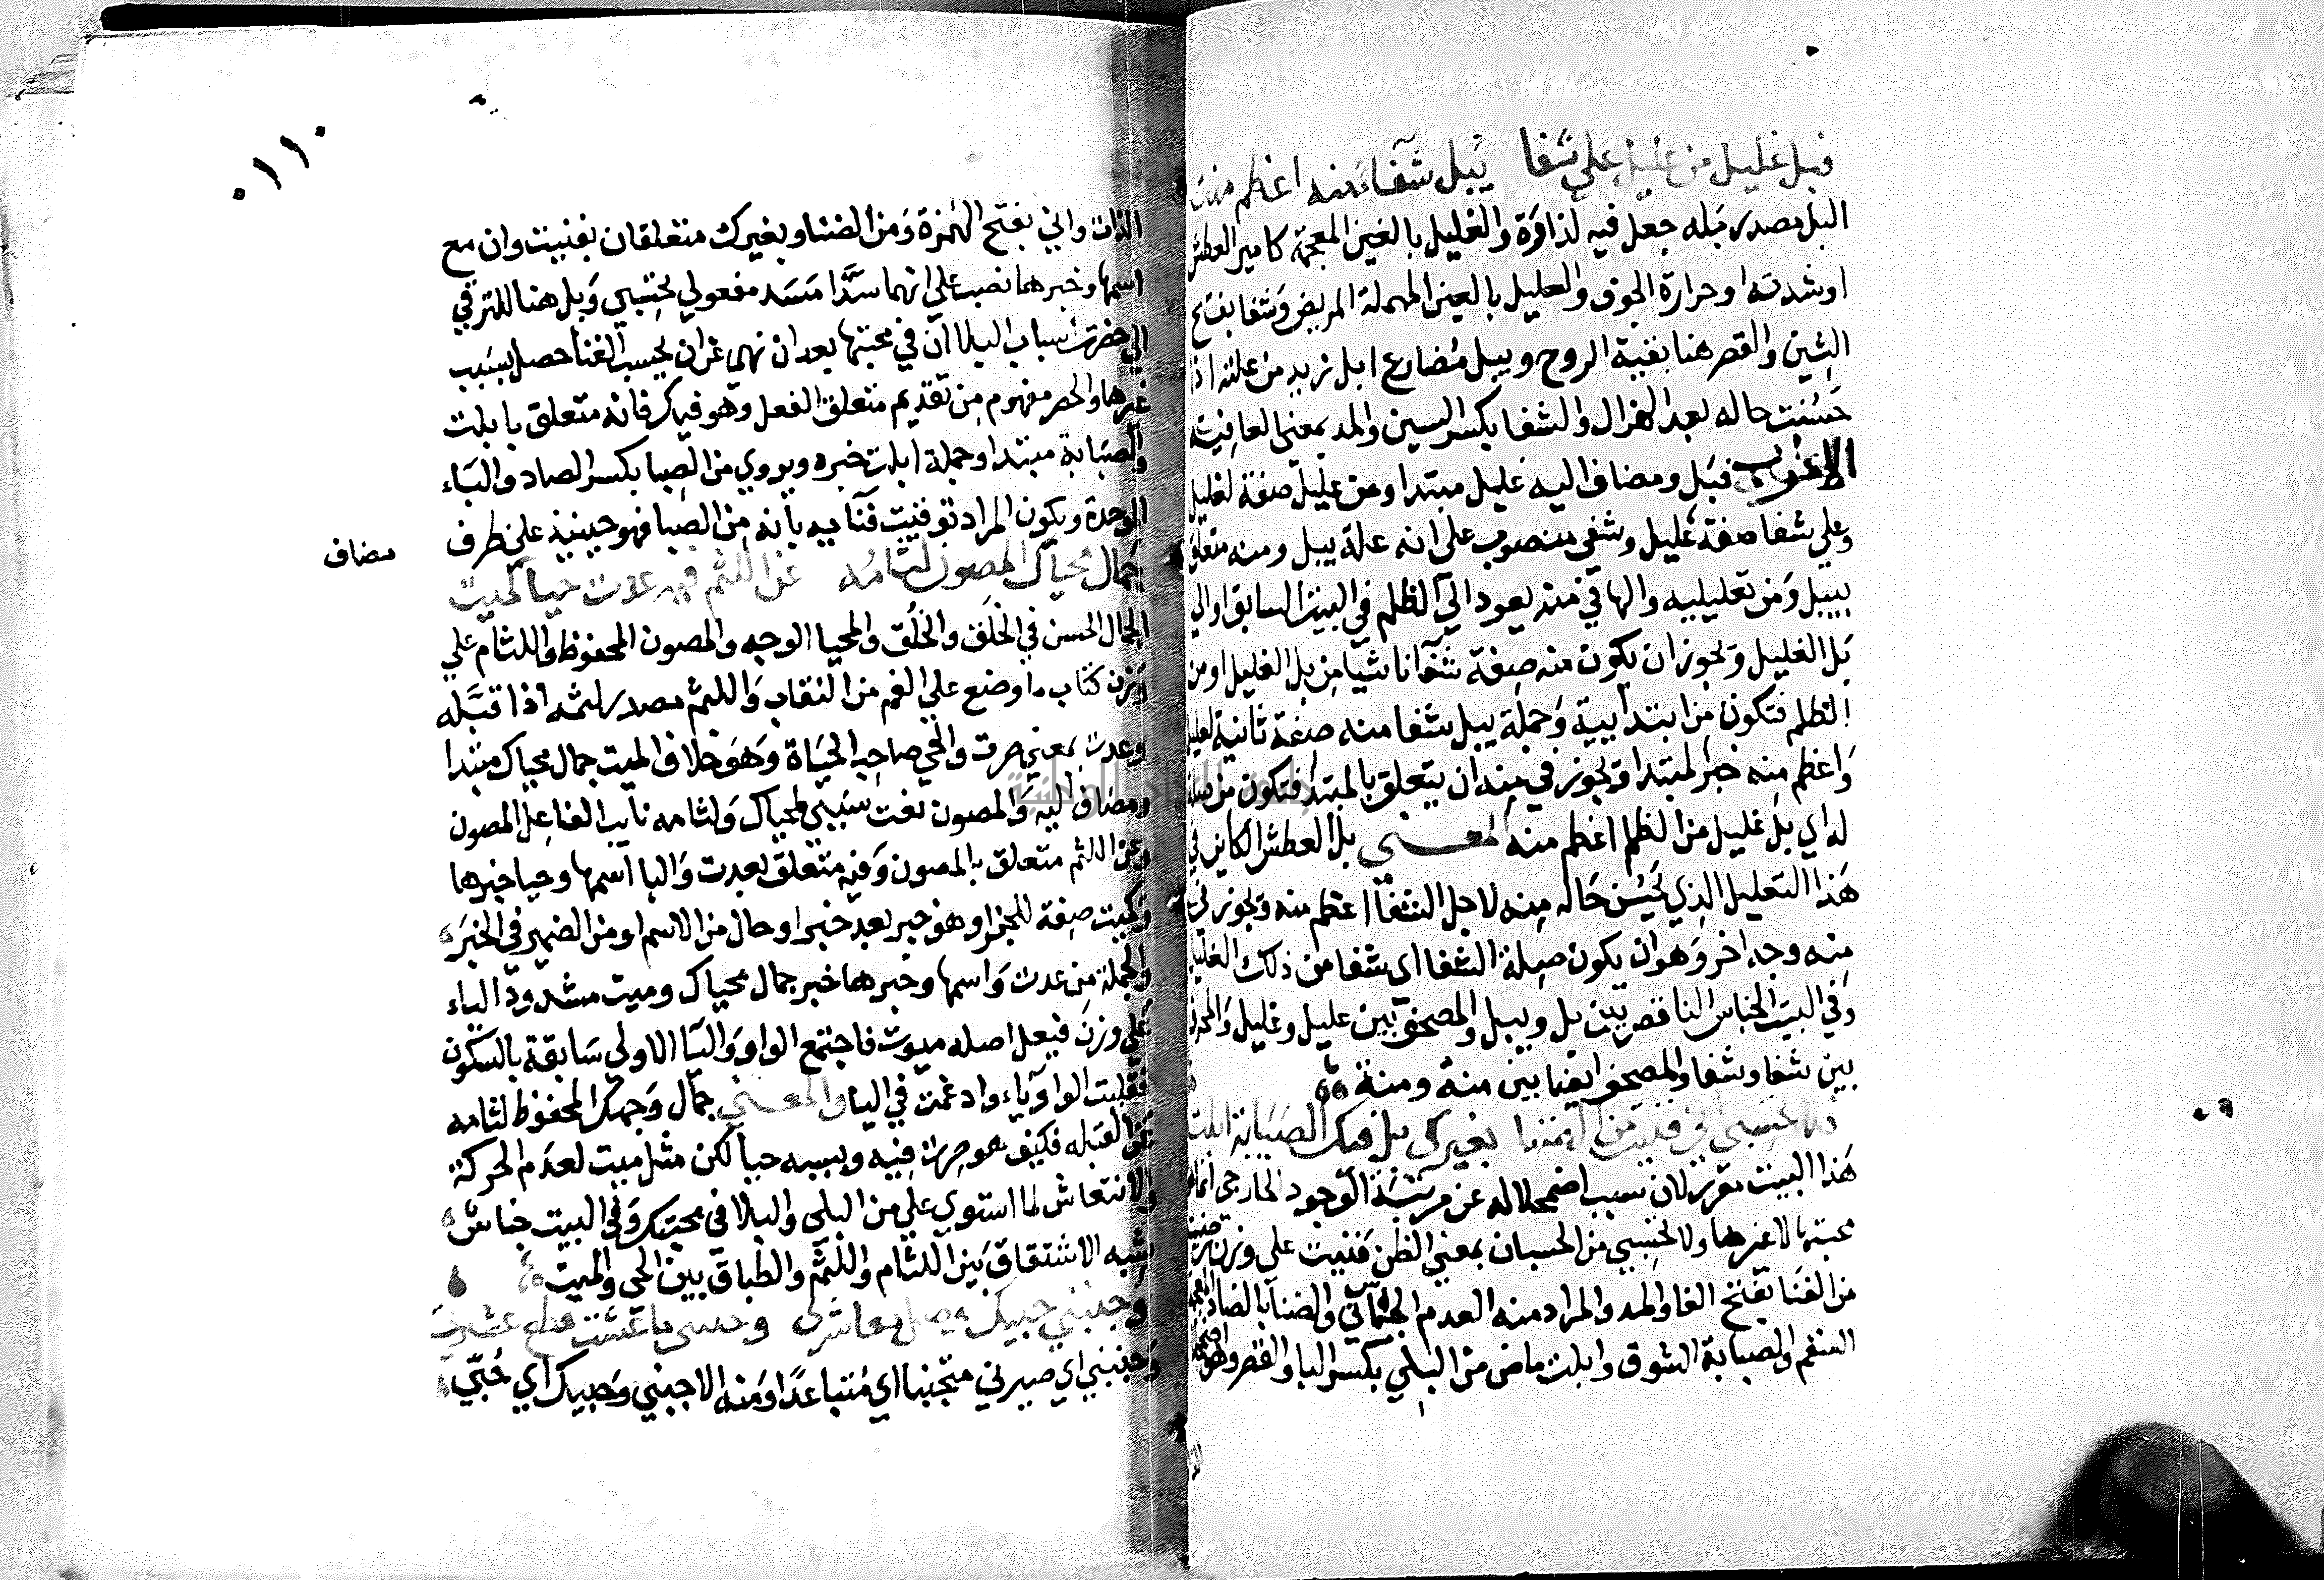 فبل غليل من عليل علي شفا يبل شفاء منه اعظم منت
البل مصدر بله جعل فيه لذاوة والغليل بالغين المعجمة كامير العطش
او شدته او حرارة الجوف والعليل بالعين المهملة المريض وشفا بفتح
الشين والقصر هنا بقية الروح ويبل مضارع ابل زيد من علته اذا
حسنت حاله بعد الهزال والشفا بكسر السين والمد بمعني العافية
الاعراب فبل ومضاف اليه غليل مبتدا ومن عليل صفة لغليل
وعلي شفا صفة عليل وشفي منصوب علي انه علة يبل ومنه متعلق
بيبل ومن تعليليه والها في منه يعود الي الظلم في البيت السابق او الي
بل الغليل ويجوز ان يكون منه صفة شفا ناشيا من بل الغليل او من
الظلم فتكون من ابتداييه وجملة يبل شفا منه صفة ثانية لعليل
واعظم منه خبر المبتدا ويجوز في منه ان يتعلق بالمبتدا فتكون من صلة
له اي بل غليل من الظلم اعظم منه المعني بل العطش الكاين في
هذا التعليل الذي يحسن حاله منه لاجل الشفا اعظم منه ويجوز في
منه وجه اخر وهو ان يكون صلة الشفا اي شفا من ذلك الغليل
وفي البيت الجناس الناقص بين بل ويبل والمصحف بين عليل وغليل والمحرف
بين شفا وشفا والمصحف ايضا بين منه ومنة
فلا تحسبي اني فنيت من الضنا بغيرك بل فيك الصبابة ابلت
هذا البيت تقرير لان سبب اضمحلاله عن مرتبة الوجود الخارجي انما هو
محبتها لا غيرها ولا تحسبي من الحسبان بمعني الظن فنيت علي وزن رضيت
من الفنا بفتح الفا والمد والمراد منه العدم الجثماني والضنا بالضاد المعجمة
السقم والصبابة الشوق وابلت ماض من البلي بكسر البا والقصر وهو اضمحلال
٠١١٠
الذات واني بفتح الهمزة ومن الضنا وبغيرك متعلقان بفنيت وان مع
اسمها وخبرهما نصب علي انهما سدا مسد مفعولي تحسبي وبل هنا للترقي
الي حضرت اسباب البلا ان في محبتها بعد ان نهي عن ان يحسب الفنا حصل بسبب
غيرها والحصر مفهوم من تقديم متعلق الفعل وهو فيك فانه متعلق بابلت
والصبابة مبتدا وجملة ابلت خبره ويروي من الصبا بكسر الصاد والباء
الوحدة ويكون المراد بقو فنيت فنآييه بانه من الصبا فهو حينيذ علي طرف
مضاف
جمال محياك المصون لثامه عن اللثم فيه عدت حيا كميت
الجمال الحسن في الخلق والخلق والمحيا الوجه والمصون المحفوظ واللثام علي
وزن كتاب ما وضع علي الفم من النقاب واللثم مصدر لثمه اذا قبله
وعدت بمعني صرت والحي صاحب الحياة وهو خلاف الميت جمال محياك مبتدا
ومضاف اليه والمصون نعت سببي لمحياك ولثامه نايب الفاعل المصون
وعن اللثم متعلق بالمصون وفيه متعلق بعدت والبا اسمها وحيا خبرها
وكميت صفة للخبر او هو خبر بعد خبر او حال من الاسم او من الضمير في الخبر
والجملة من عدت واسمها وخبرهما خبر جمال محياك وميت مشدود الياء
علي وزن فيعل اصله ميوت فاجتمع الواو واليا الاولي سابقة بالسكون
فقلبت الواو ياء وادغمت في اليا والمعني جمال وجهك المحفوظ لثامه
عن القبله فكيف هو صرت فيه وبسببه حيا لكن مثل ميت لعدم الحركة
والانتعاش لما استوي علي من البلي والبلا في محبتك وفي البيت جناس
شبه الاشتقاق بين اللثام واللثم والطباق بين الحي والميت
وجنبني حبيك وصل معاشري وحببني ما عشت قطع عشيرتي
وجنبني اي صيرني متجنبا اي متباعدا ومنه الاجنبي وحبيك اي حبي